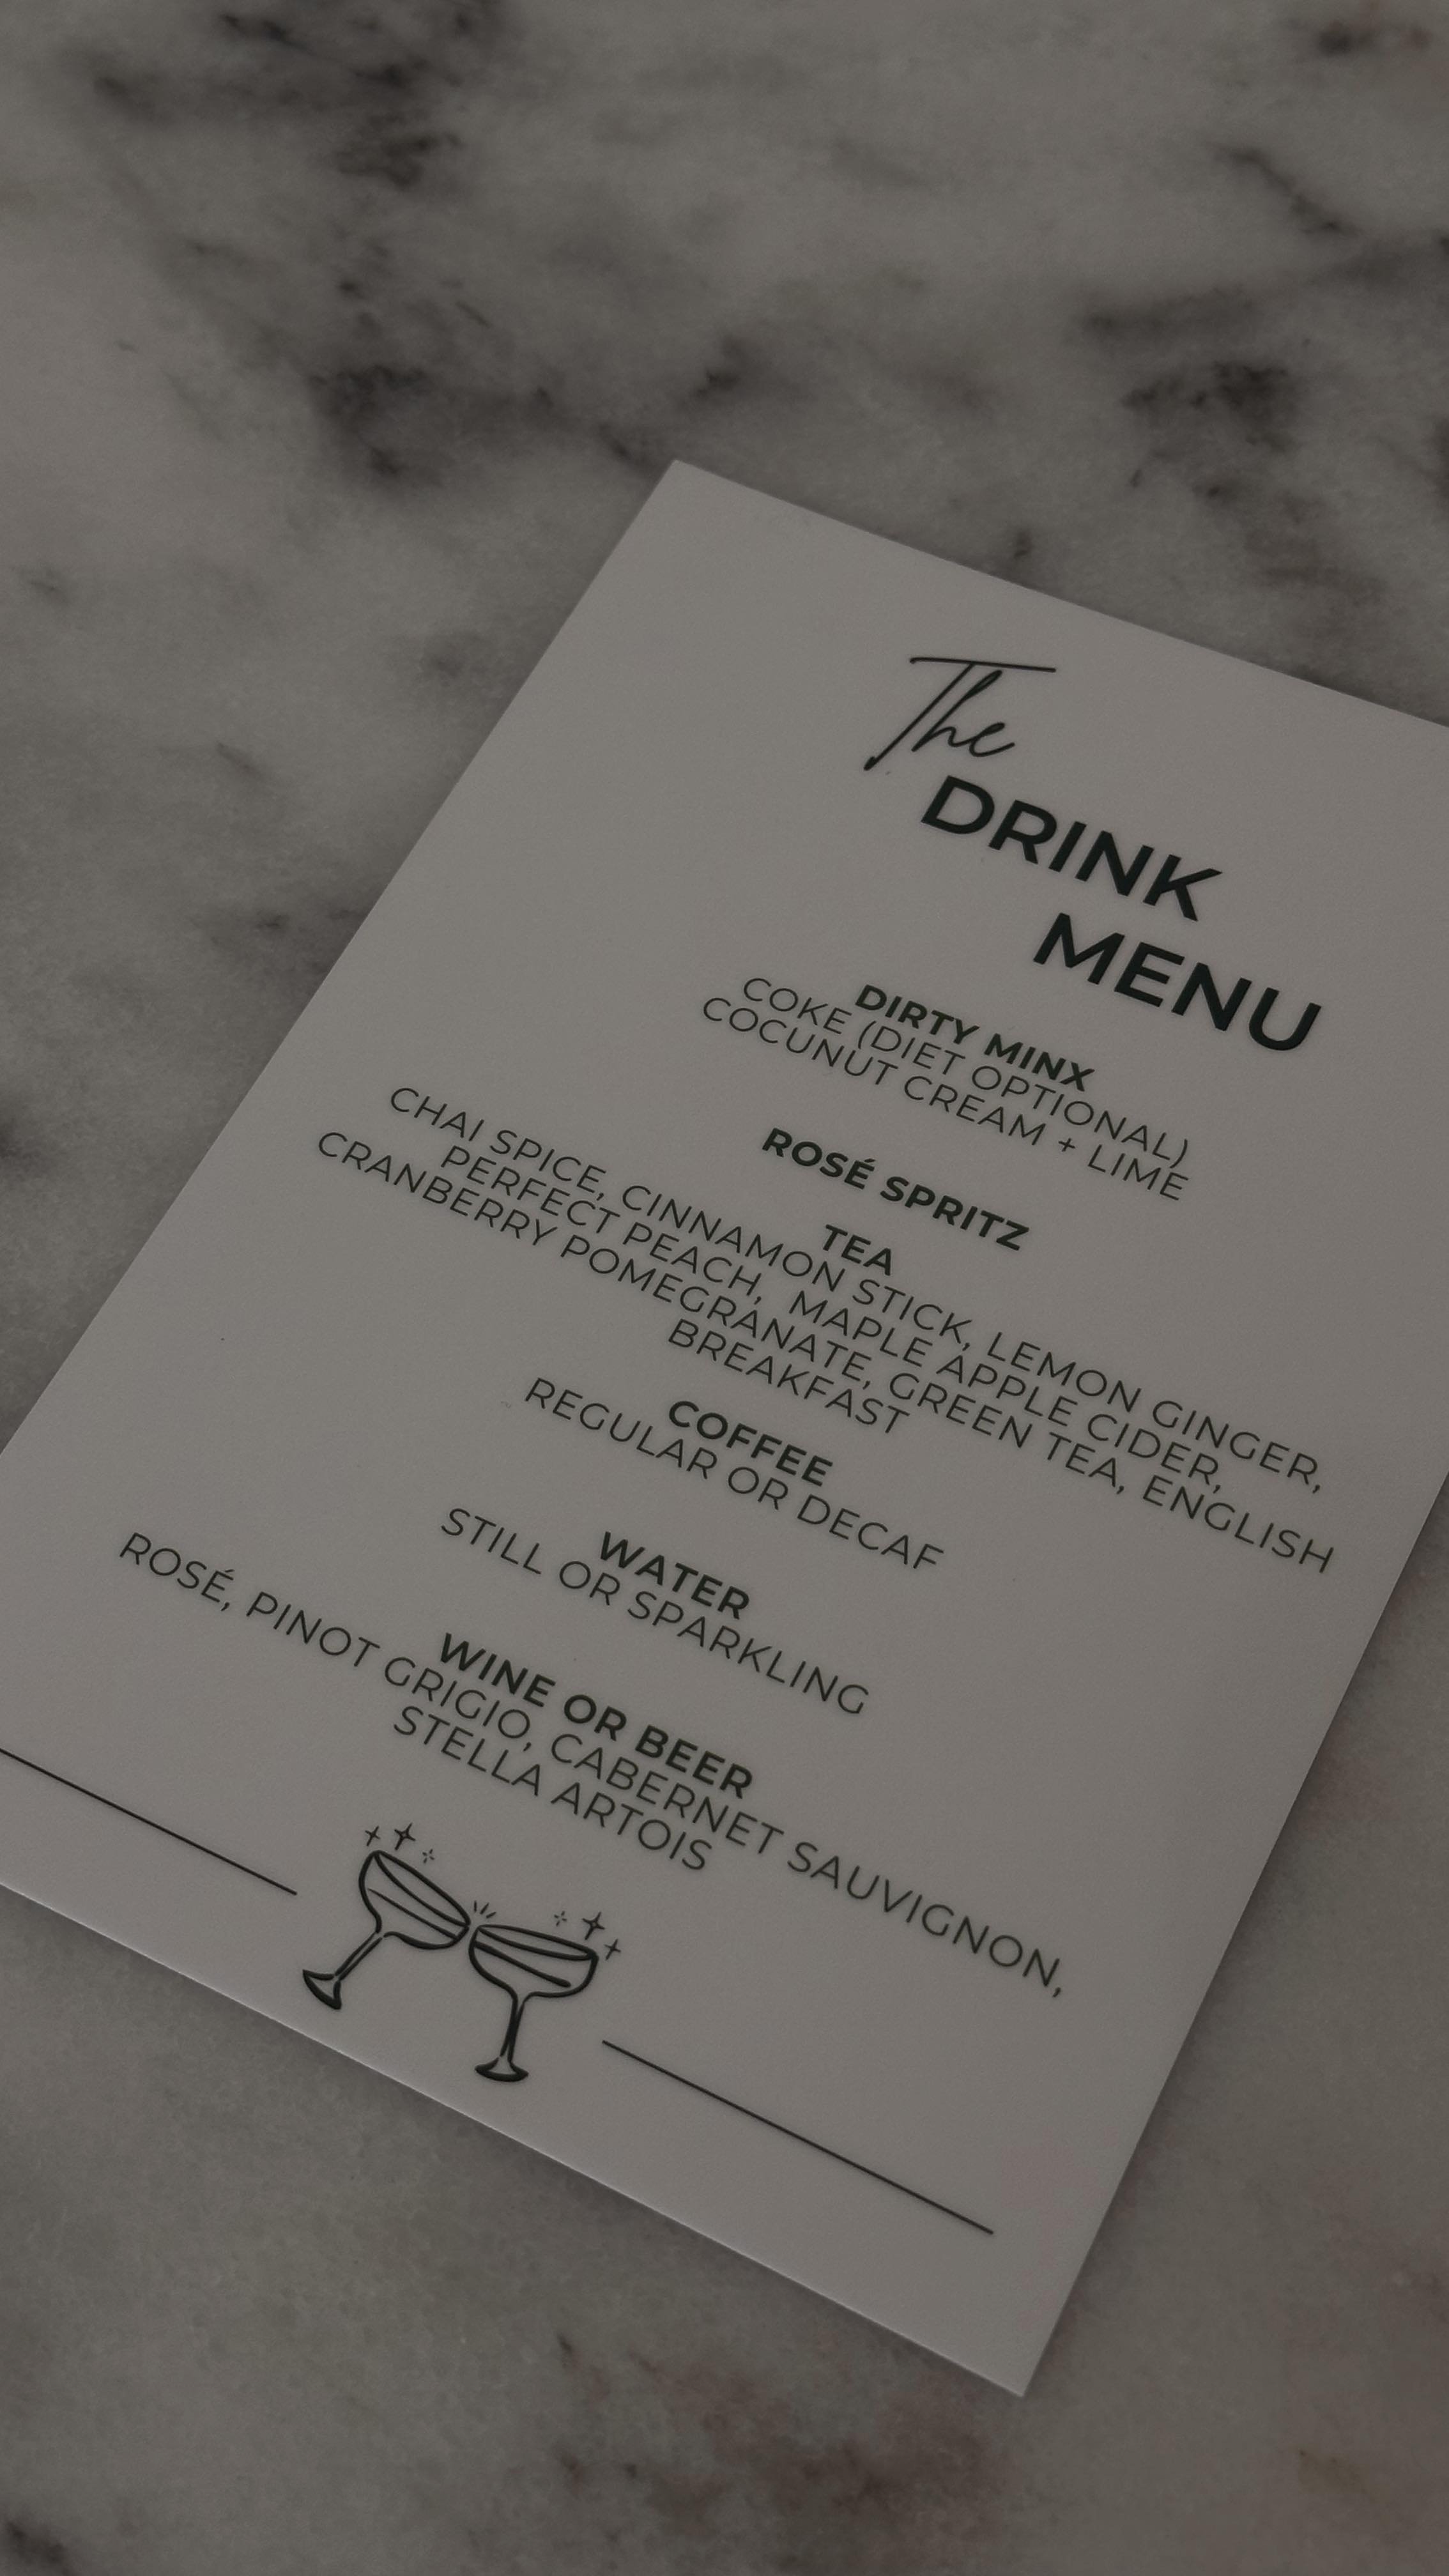 The
DRINK
MENU
DIRTY MINX
COKE (DIET OPTIONAL)
COCUNUT CREAM + LIME
ROSÉ SPRITZ
TEA
CHAI SPICE, CINNAMON STICK, LEMON GINGER,
PERFECT PEACH, MAPLE APPLE CIDER,
CRANBERRY POMEGRANATE, GREEN TEA, ENGLISH
BREAKFAST
COFFEE
REGULAR OR DECAF
WATER
STILL OR SPARKLING
WINE OR BEER
ROSÉ, PINOT GRIGIO, CABERNET SAUVIGNON,
STELLA ARTOIS